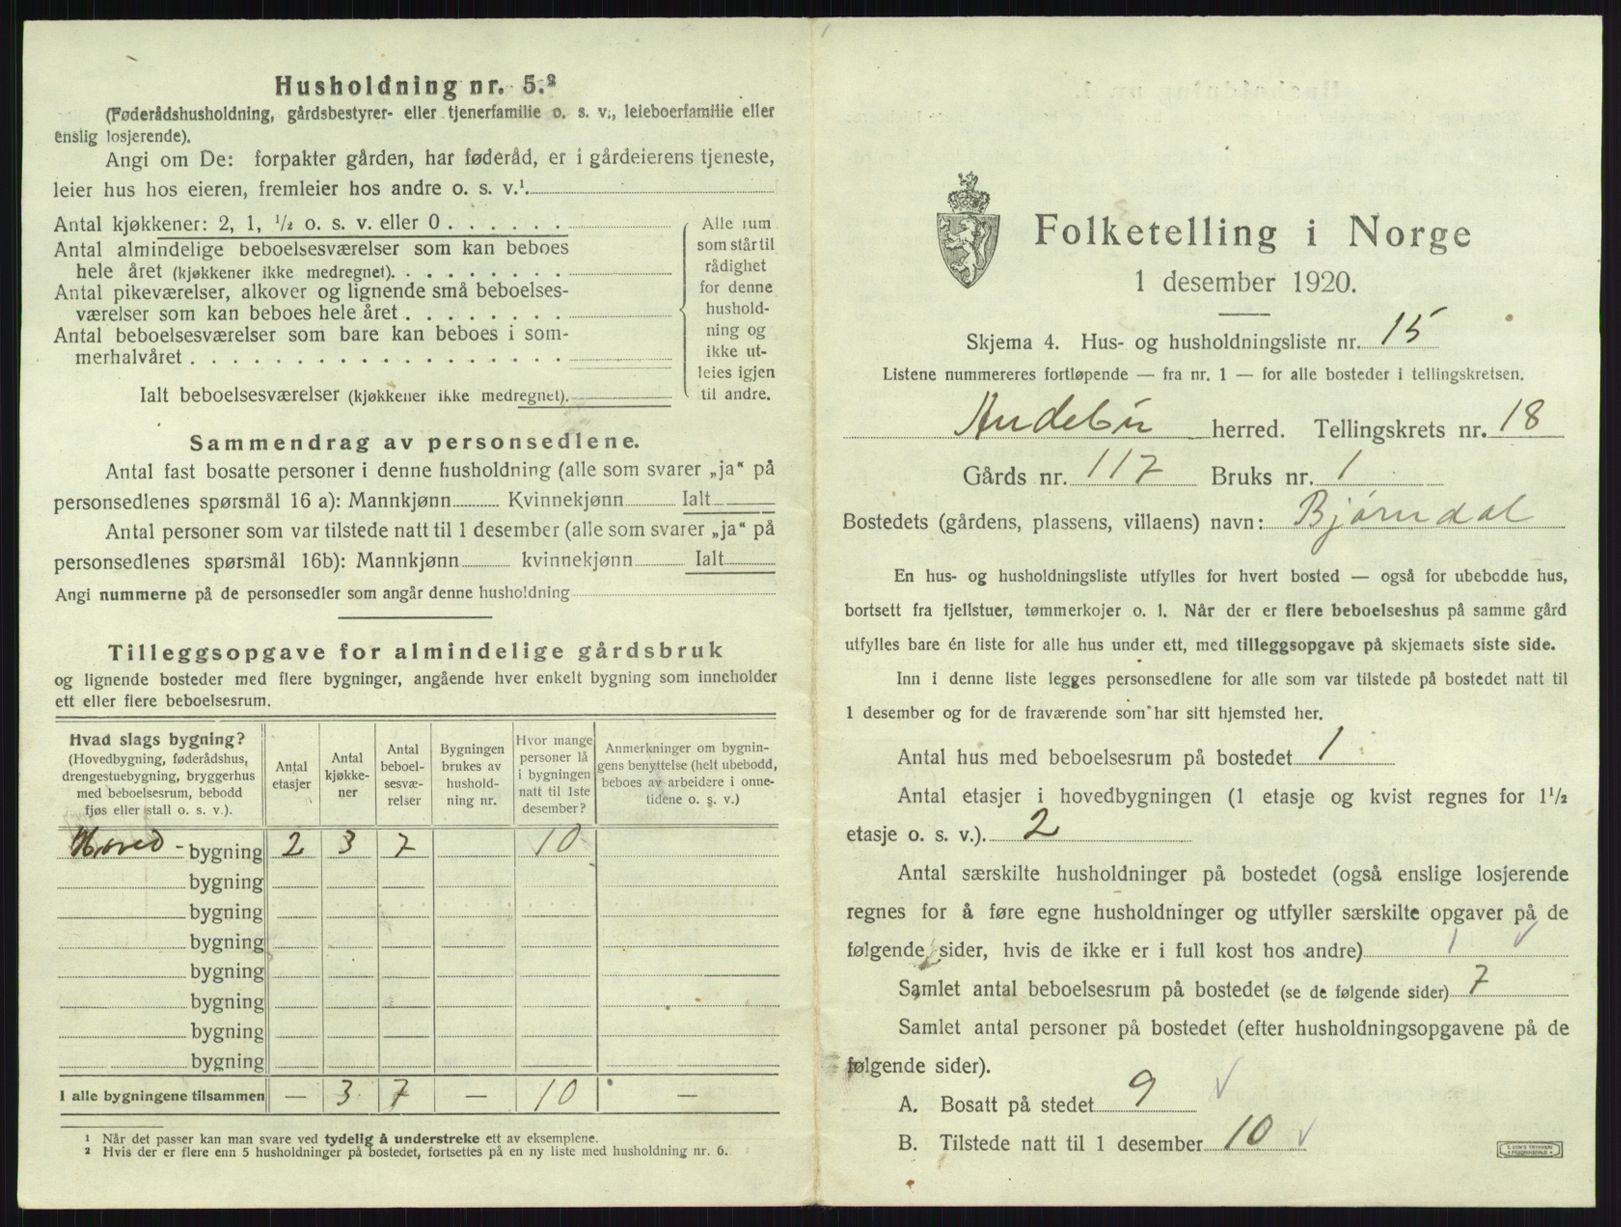 Husholdning nr. 5.²
(Føderådshusholdning, gårdsbestyrer- eller tjenerfamilie o. s. v., leieboerfamilie eller
enslig losjerende).
Angi om De: forpakter gården, har føderåd, er i gårdeierens tjeneste,
leier hus hos eieren, fremleier hos andre o. s. v.¹
Antal kjøkkener: 2, 1, ½ o. s. v. eller 0 . . . . . .
Antal almindelige beboelsesværelser som kan beboes
hele året (kjøkkener ikke medregnet). . . . . . . . .
Antal pikeværelser, alkover og lignende små beboelses-
værelser som kan beboes hele året . . . . . . . .
Antal beboelsesværelser som bare kan beboes i som-
merhalvåret . . . . . . . . . . . . . . . . . .
Ialt beboelsesværelser (kjøkkener ikke medregnet).
Alle rum
som står til
rådighet
for denne
hushold-
ning og
ikke ut-
leies igjen
til andre.
Sammendrag av personsedlene.
Antal fast bosatte personer i denne husholdning (alle som svarer „ja“ på
personsedlenes spørsmål 16 a): Mannkjønn Kvinnekjønn Ialt
Antal personer som var tilstede natt til 1 desember (alle som svarer „ja“ på
personsedlenes spørsmål 16b): Mannkjønn kvinnekjønn Ialt
Angi nummerne på de personsedler som angår denne husholdning
Tilleggsopgave for almindelige gårdsbruk
og lignende bosteder med flere bygninger, angående hver enkelt bygning som inneholder
ett eller flere beboelsesrum.
Hvad slags bygning?
(Hovedbygning, føderådshus,
drengestuebygning, bryggerhus
med beboelsesrum, bebodd
fjøs eller stall o. s. v.).
Antal
etasjer
Antal
kjøkke-
ner
Antal
beboel-
sesvæ-
relser
Bygningen
brukes av
hushold-
ning nr.
Hvor mange
personer lå
i bygningen
natt til 1ste
desember?
Anmerkninger om bygnin-
gens benyttelse (helt ubebodd,
beboes av arbeidere i onne-
tidene o. s. v.)
Hoved - bygning 2 3 7 10
bygning
bygning
bygning
bygning
bygning
bygning
bygning
I alle bygningene tilsammen — 3 7 — 10 —
¹ Når det passer kan man svare ved tydelig å understreke ett av eksemplene.
² Hvis der er flere enn 5 husholdninger på bostedet, fortsettes på en ny liste med husholdning nr. 6.
Folketelling i Norge
1 desember 1920.
Skjema 4. Hus- og husholdningsliste nr. 15
Listene nummereres fortløpende — fra nr. 1 — for alle bosteder i tellingskretsen.
Andebu herred. Tellingskrets nr. 18
Gårds nr. 117 Bruks nr. 1
Bostedets (gårdens, plassens, villaens) navn: Bjørndal
En hus- og husholdningsliste utfylles for hvert bosted — også for ubebodde hus,
bortsett fra fjellstuer, tømmerkojer o. l. Når der er flere beboelseshus på samme gård
utfylles bare én liste for alle hus under ett, med tilleggsopgave på skjemaets siste side.
Inn i denne liste legges personsedlene for alle som var tilstede på bostedet natt til
1 desember og for de fraværende som har sitt hjemsted her.
Antal hus med beboelsesrum på bostedet 1
Antal etasjer i hovedbygningen (1 etasje og kvist regnes for 1½
etasje o. s. v.). 2
Antal særskilte husholdninger på bostedet (også enslige losjerende
regnes for å føre egne husholdninger og utfyller særskilte opgaver på de
følgende sider, hvis de ikke er i full kost hos andre) 1 ✓
Samlet antal beboelsesrum på bostedet (se de følgende sider) 7
Samlet antal personer på bostedet (efter husholdningsopgavene på de
følgende sider).
A. Bosatt på stedet 9 ✓
B. Tilstede natt til 1 desember 10 ✓